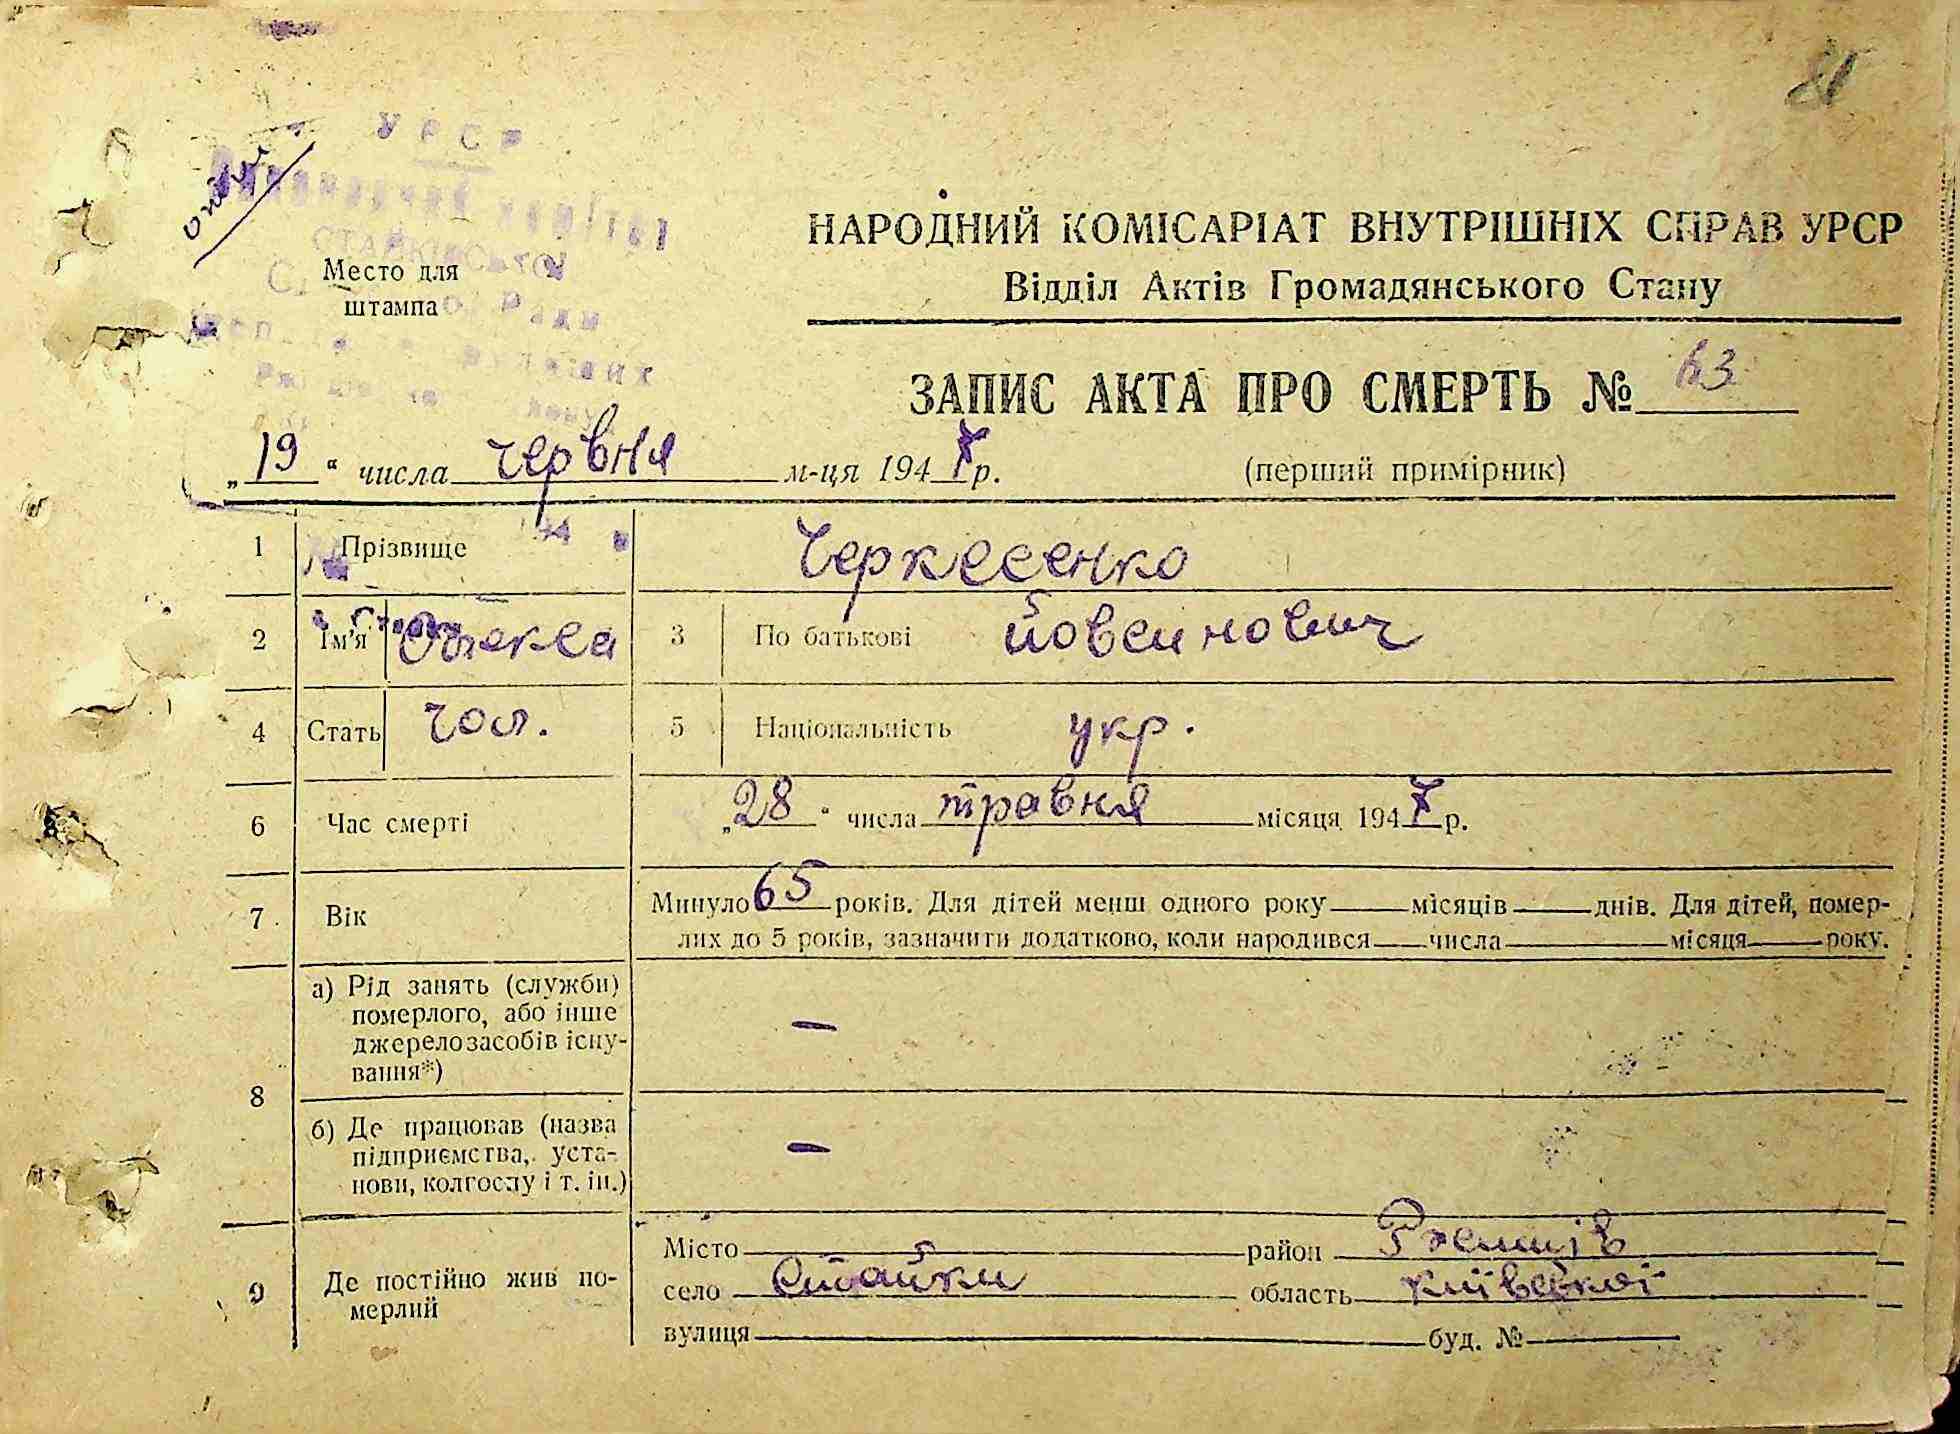 УРСР
Виконавчий комітет
СТАЙКІВСЬКОЇ
Ради
Место для
штампа
НАРОДНИЙ КОМІСАРІАТ ВНУТРІШНІХ СПРАВ УРСР
Відділ Актів Громадянського Стану
ЗАПИС АКТА ПРО СМЕРТЬ № 63
„19“ числа червня м-ця 1947 р. (перший примірник)
1 Прізвище Черкесенко
2 Ім'я Олекса 3 По батькові Йовсинович
4 Стать чол. 5 Національність укр.
6 Час смерті „28“ числа травня місяця 1947 р.
7 Вік Минуло 65 років. Для дітей менш одного року місяців днів. Для дітей, помер-
лих до 5 років, зазначити додатково, коли народився числа місяця року.
8 а) Рід занять (служби)
померлого, або інше
джерело засобів існу-
вання*) —
б) Де працював (назва
підприємства, уста-
нови, колгоспу і т. ін.) —
9 Де постійно жив по-
мерлий
Місто район Ржищів
село Стайки область Київської
вулиця буд. №